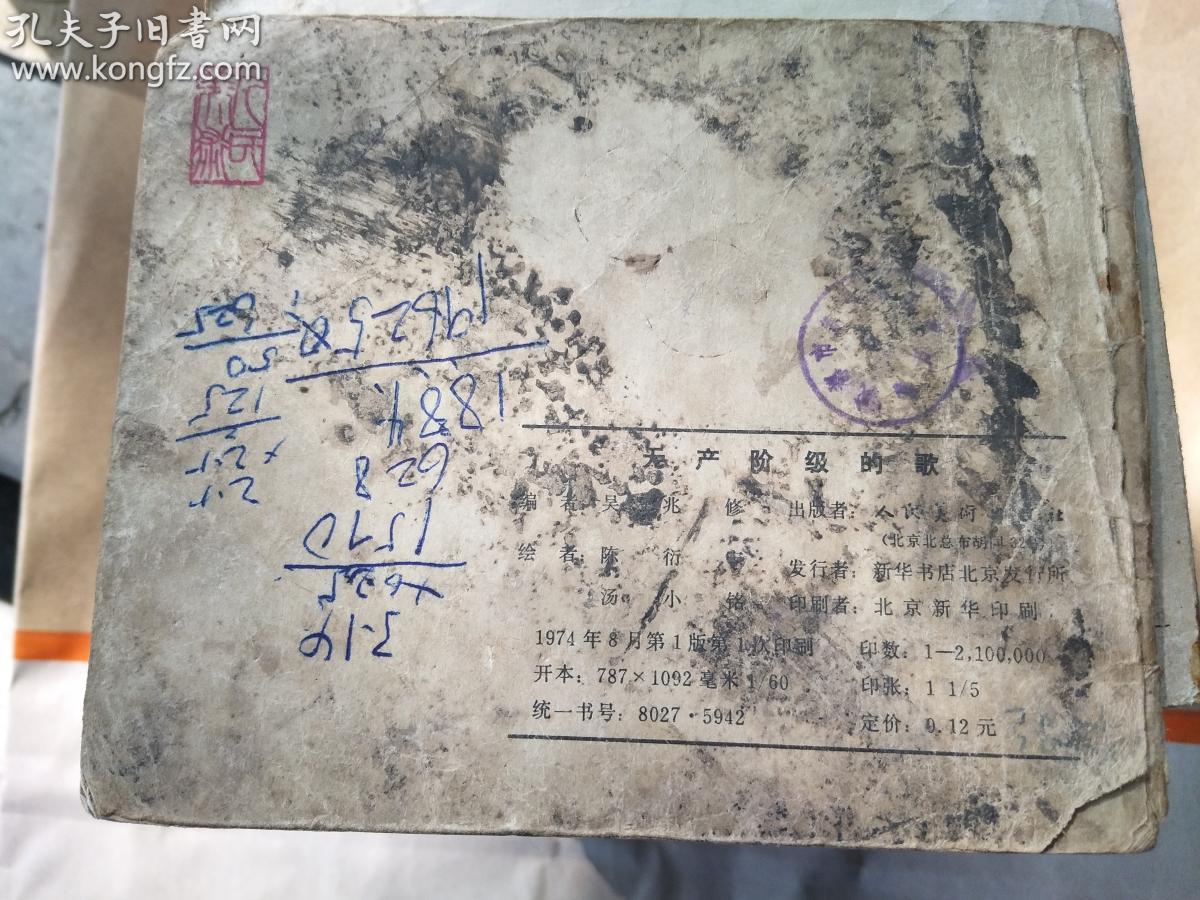 孔夫子旧书网
www.kongfz.com
无产阶级的歌
编者：吴兆修
绘者：陈衍
汤小铭
出版者：人民美术 社
（北京北总布胡同32号）
发行者：新华书店北京发行所
印刷者：北京新华印刷
1974年8月第1版第1次印刷
印数：1—2,100,000
开本：787×1092毫米1/60
印张：1 1/5
统一书号：8027·5942
定价：0.12元
25
×25
125
50
625
3.14
×625
1570
628
1884